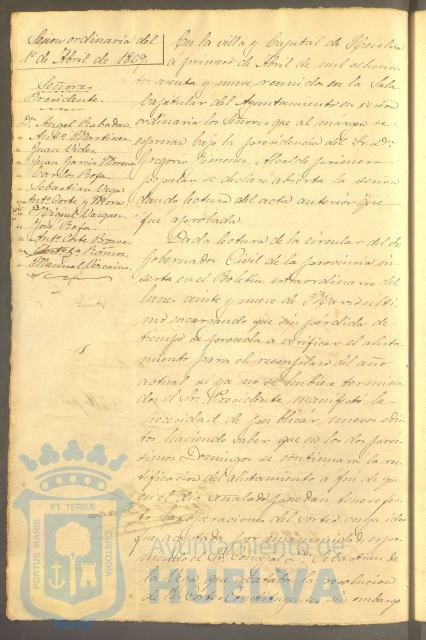 Sesion ordinaria del
1º de Abril de 1869.
Señores
Presidente.
Dn. Angel Rabadan
" Anto. Martinez
" Juan Vides
" Juan Garcia Moreno
" Carlos Rofa
" Sebastian Vega
" Anto. Corte y Mora
" Miguel Vazquez
" José Rofa
" Anto. Corte Bravo
Ramos
" Manuel Vizcaino
En la villa y Capital de Huelva
a primero de Abril de mil ochocien-
tos sesenta y nueve reunidos en la Sala
Capitular del Ayuntamiento en sesion
ordinaria los Señores que al margen se
espresan bajo la presidencia del Sr. Dn.
Gregorio Jimenez, Alcalde primero
popular se declaró abierta la sesion
dando lectura del acta anterior que
fue aprobada.
Dada lectura de la circular del Sr.
Gobernador Civil de la provincia in-
serta en el Boletin extraordinario del
lunes veinte y nueve de Marzo ulti-
mo encargando que sin pérdida de
tiempo se proceda a verificar el alista-
miento para el reemplazo del año
actual si ya no se hubiese termina-
do, el Sr. Presidente manifestó la
necesidad de publicar nuevos edic-
tos haciendo saber que en los dos proc-
simos Domingos se continuará la rec-
tificacion del alistamiento a fin de que
en el dia señalado puedan tener efec-
to las operaciones del sorteo, cuya idea
fue adoptada por unanimidad, espo-
niendo el Sr. Concejal D. Sebastian de
la Vega que acataba la resolucion
de las Cortes Constituyentes, sin embargo
PORTUS MARIS
ET TERRÆ
CUSTODIA
Ayuntamiento de
HUELVA